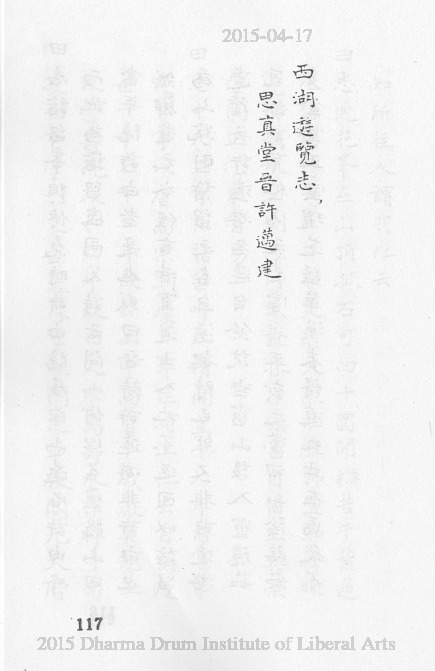 2015-04-17
西湖遊覽志，
思真堂晉許邁建
117
2015 Dharma Drum Institute of Liberal Arts